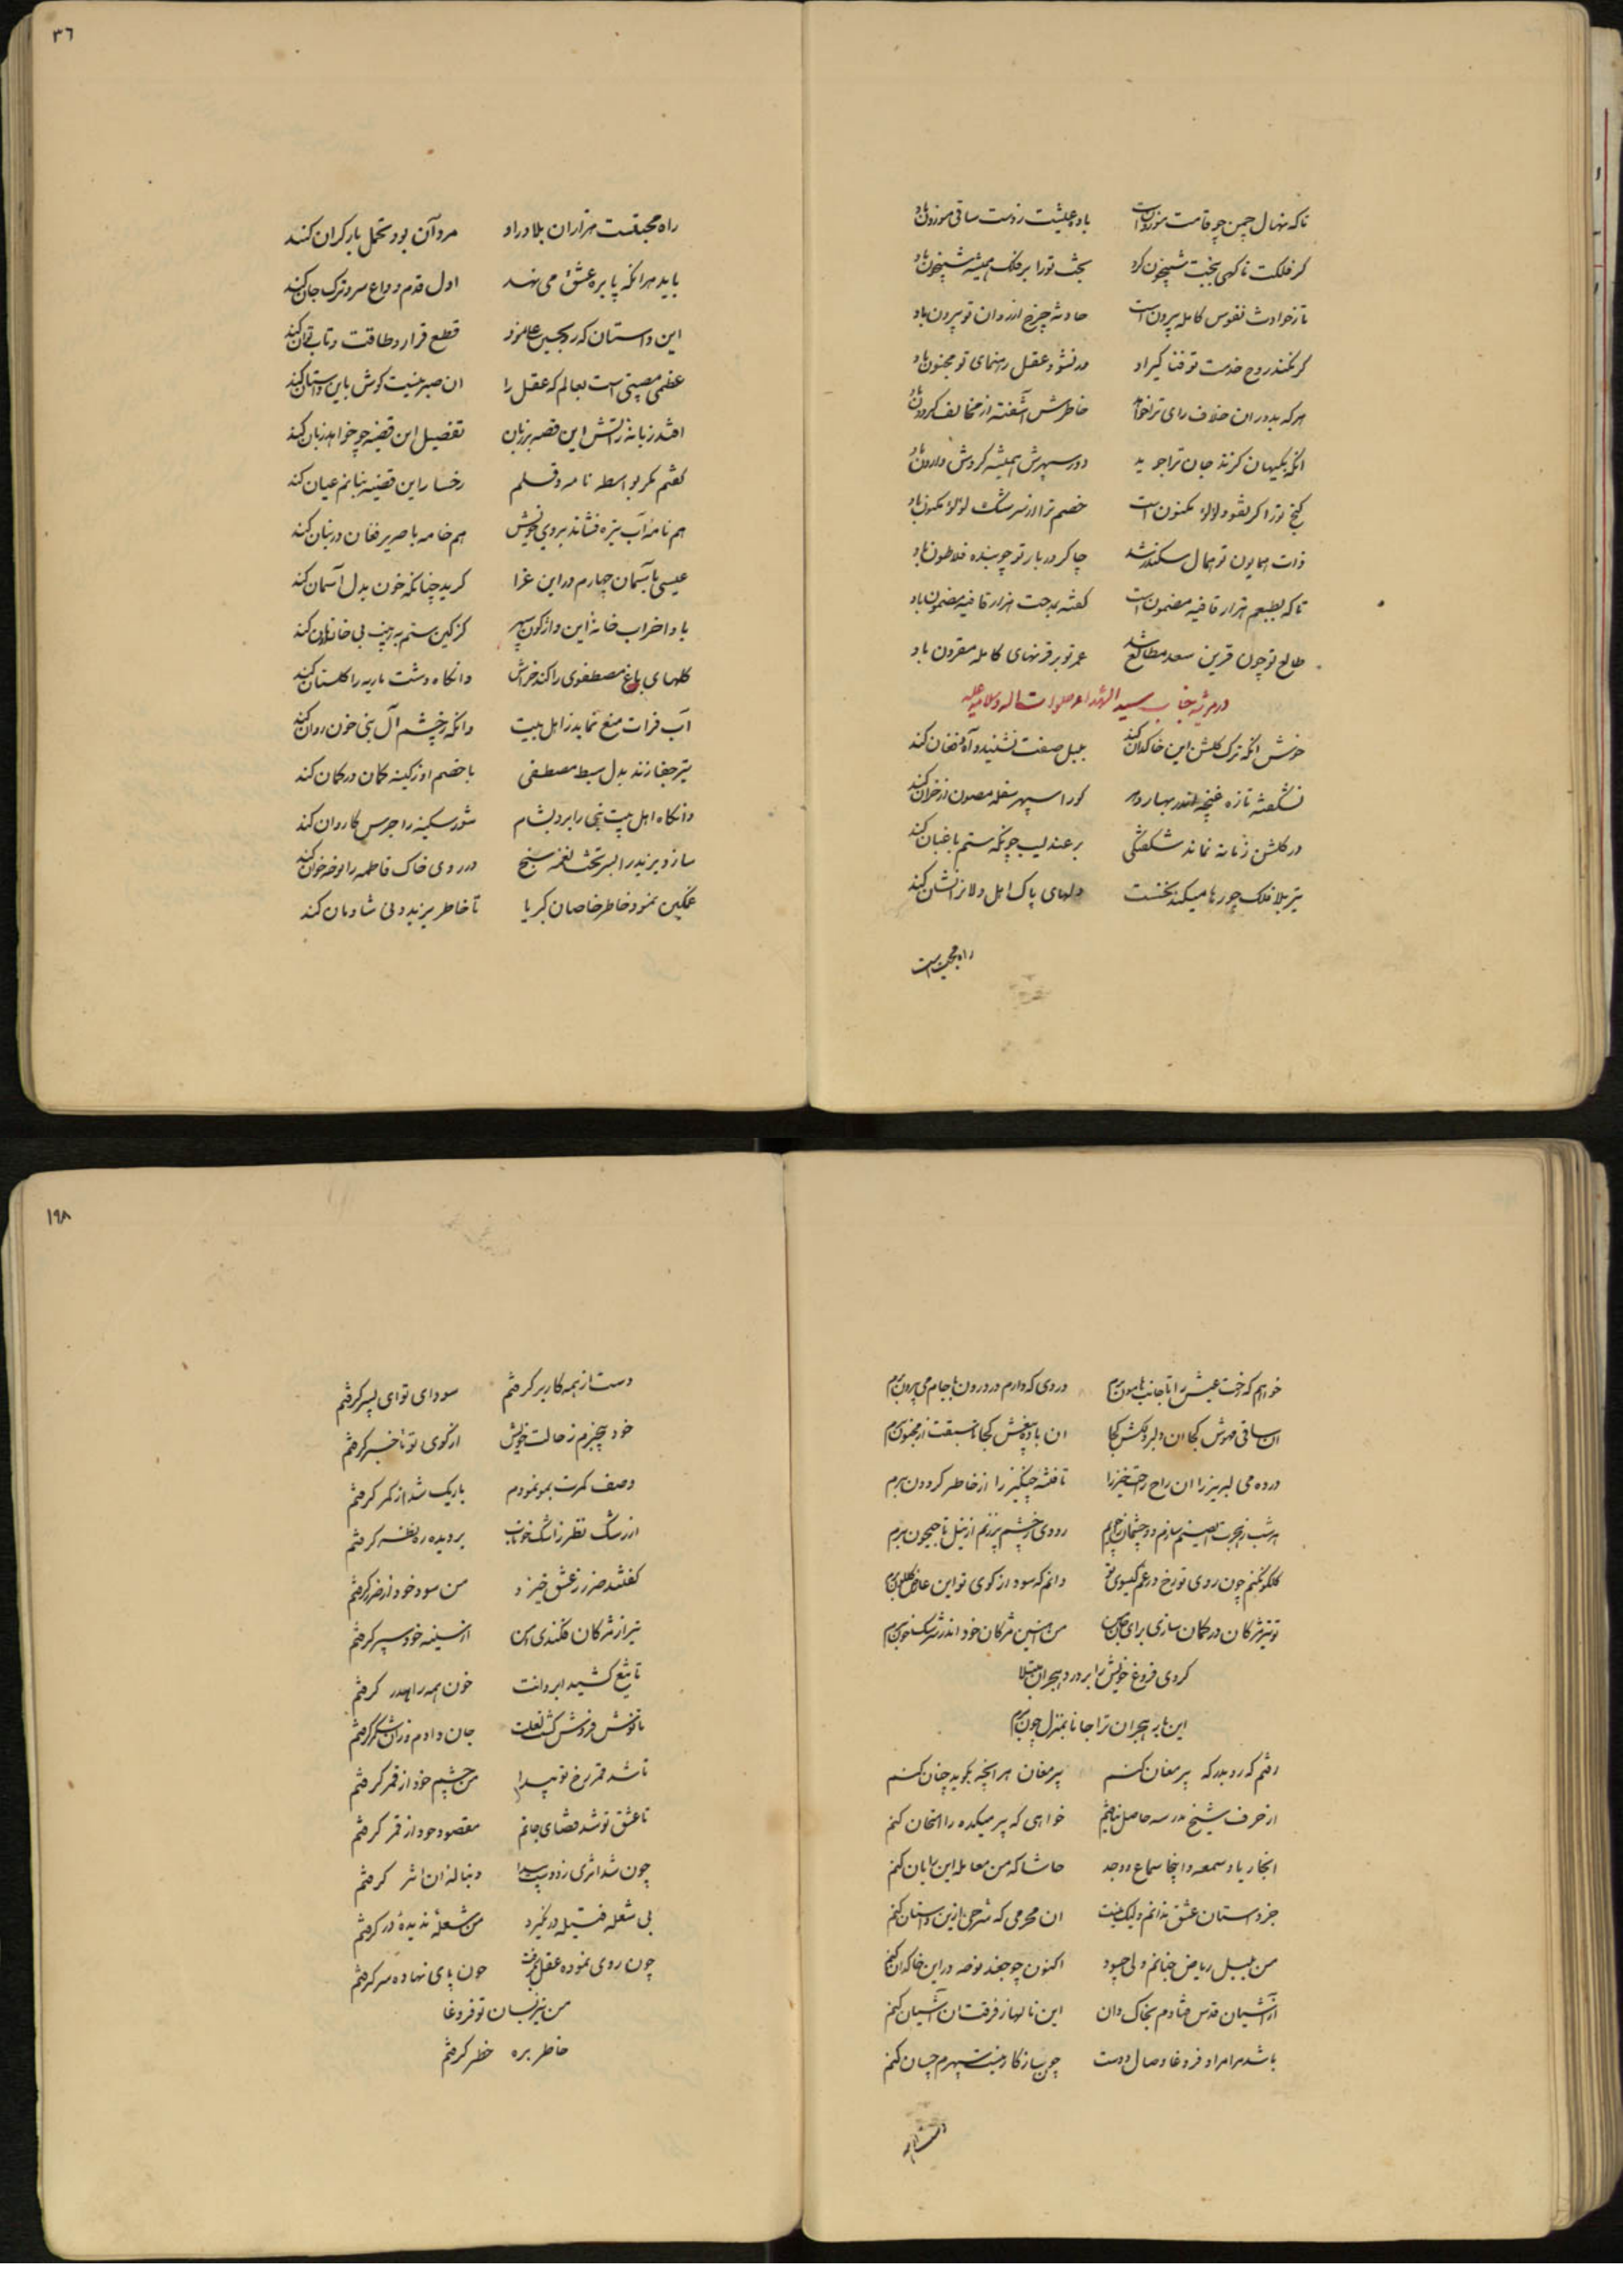 تا که نهال چمن چو قامت موزون است باده عیشت ز دست ساقی موزون باد
گر فلکت ناگهی بخت شبیخون کرد بخت تو را بر فلک همیشه شبیخون باد
تا ز حوادث نفوس کامله بیرون است حادثه چرخ از روان تو بیرون باد
گر نکند روح خدمت تو فنا گیراد ور نشود عقل رهنمای تو مجنون باد
هر که بدوران خلاف رای ترا خواهد خاطرش آشفته از مخالف گردون باد
آنکه بکیهان گزند جان ترا جوید دور سپهرش همیشه گردش وارون باد
گنج تو را گر نقود لؤلؤ مکنون است خصم ترا از سرشک لؤلؤ مکنون باد
ذات همایون تو همال سکندر شد چاکر دربار تو چو بنده فلاطون باد
تا که بطبعم هزار قافیه مضمون است گفته بمدحت هزار قافیه مضمون باد
طالع تو چون قرین سعد مطالع شد عمر تو بر قرنهای کامله مقرون باد
در مرثیه جناب سید الشهداء صلوات الله و سلامه علیه
خوش آنکه ترک گلشن این خاکدان کند بلبل صفت نشیند و آه و فغان کند
نشکفته تازه غنچه اندر بهار دهر کو را سپهر سفله مصون از خزان کند
در گلشن زمانه نماند شکفتگی بر عندلیب چونکه ستم باغبان کند
تیر بلا فلک چو رها میکند نخست دلهای پاک اهل ولا را نشان کند
راه محبت است
۳۶
راه محبتست هزاران بلا در او مرد آن بود تحمل بار گران کند
باید هر آنکه پا بره عشق می نهد اول قدم وداع سر و ترک جان کند
این داستان که قطع قرار و طاقت و تاب و توان کند
عظمی مصیبتی است بعالم که عقل را آن صبر نیست گوش باین داستان کند
افتد زبانه ز آتش این قصه بر زبان تفصیل این قضیه چو خواهد زبان کند
گفتم مگر بواسطه نامه و قلم رخسار این قضیه بنانم عیان کند
هم نامه آب تیره فشاند بروی خویش هم خامه با صریر فغان در بنان کند
عیسی بآسمان چهارم در این عزا گرید چنانکه خون بدل آسمان کند
بادا خراب خانه این واژگون سپهر کز کین ستم به بی خانمان کند
گلهای باغ مصطفوی را کند خزان وانگاه دشت ماریه را گلستان کند
آب فرات منع نماید ز اهل بیت وانگه ز چشم آل نبی خون روان کند
تیر جفا زند بدل سبط مصطفی با خصم او ز کینه کمان در کمان کند
وانگاه اهل بیت نبی را برد بشام شور سکینه را جرس کاروان کند
سازد یزید را بسر تخت نغمه سنج در روی خاک فاطمه را نوحه خوان کند
غمگین نمود خاطر خاصان کبریا تا خاطر یزید دنی شادمان کند
خواهم که رخت عیش را تا جانب هامون برم دردی که دارم در درون با جام می بیرون برم
آن ساقی مهوش کجا آن دلبر دلکش کجا آن باده بیغش کجا تا سبقت از مجنون برم
درده می لبریز را آن راح فرحت خیز را تا فتنه چنگیز را از خاطر گردون برم
هر شب ز هجرت ای صنم سازم دو چشمان رودی ز چشم پر ز نم از نیل تا جیحون برم
گلگون کنم چون روی تو رخ در غم گیسوی تو دانم که سود از کوی تو این عارض گلگون برم
تو تیر مژگان در کمان سازی برای من من این مژگان خود اندر سرشک خون برم
کردی فروغ خویش را بر درد هجران مبتلا
این بار هجران ترا جانا بمنزل چون برم
رفتم که رو بدرگه پیر مغان کنم پیر مغان هر آنچه بگوید چنان کنم
از حرف شیخ مدرسه حاصل نیافتم خواهی که پیر میکده را امتحان کنم
آنجا ریا و سمعه و اینجا سماع و وجد حاشا که من معامله این با آن کنم
جز داستان عشق ندانم ولیک نیست آن محرمی که شرحی ازین داستان کنم
من بلبل ریاض جنانم ولی چه سود اکنون چو جغد نوحه در این خاکدان کنم
از آشیان قدس فتادم بخاک دان این نالها ز فرقت آن آشیان کنم
باشد مرا مراد فروغا وصال دوست چون سازگار نیست سپهرم چسان کنم
دست از همه
۱۹۸
دست از همه کار برگرفتم سودای تو ای پسر گرفتم
خود بیخبرم ز حالت خویش از کوی تو تا خبر گرفتم
وصف کمرت بمو نمودم باریک شد از کمر گرفتم
از رشک نظر ز اشک خوناب بر دیده ره نظر گرفتم
گفتند ضرر ز عشق خیزد من سود خود از ضرر گرفتم
تیر از مژگان فکندی و من از سینه خود سپر گرفتم
تا تیغ کشید ابروانت خون همه را هدر گرفتم
تا نوش فروش گشت لعلت جان دادم و زان شکر گرفتم
تا شد قمر رخ تو پیدا من چشم خود از قمر گرفتم
تا عشق تو شد قضای جانم مقصود خود از قدر گرفتم
چون شد اثری ز درد پیدا دنباله آن اثر گرفتم
بی شعله فتیله در نگیرد من شعله ندیده در گرفتم
چون روی نموده عقل رفت چون پای نهاده سر گرفتم
من نیز بسان تو فروغا
خاطر بره خطر گرفتم